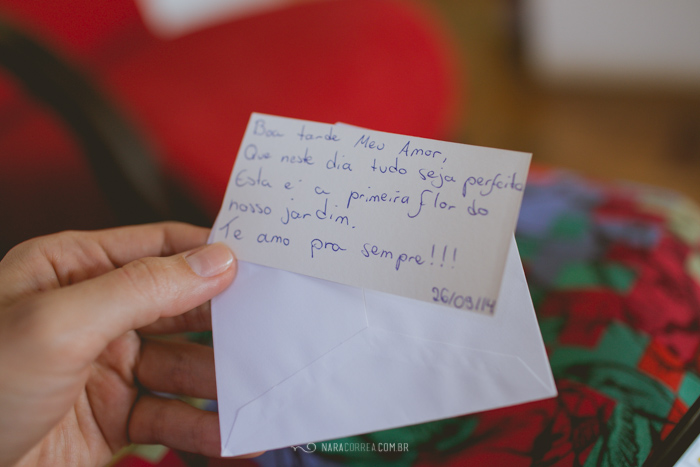 Boa tarde Meu Amor,
Que neste dia tudo seja perfeito
Esta é a primeira flor do
nosso jardim.
Te amo pra sempre!!!
26/09/14
NARACORREA.COM.BR